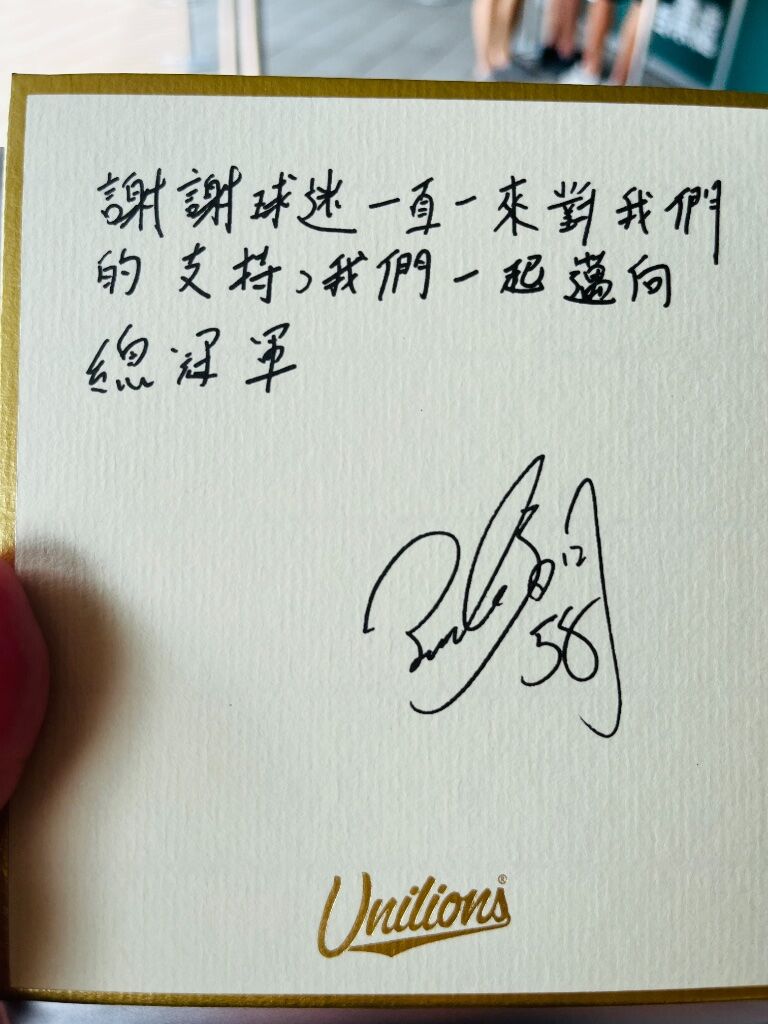 謝謝球迷一直一來對我們
的支持，我們一起邁向
總冠軍
58
Unilions®